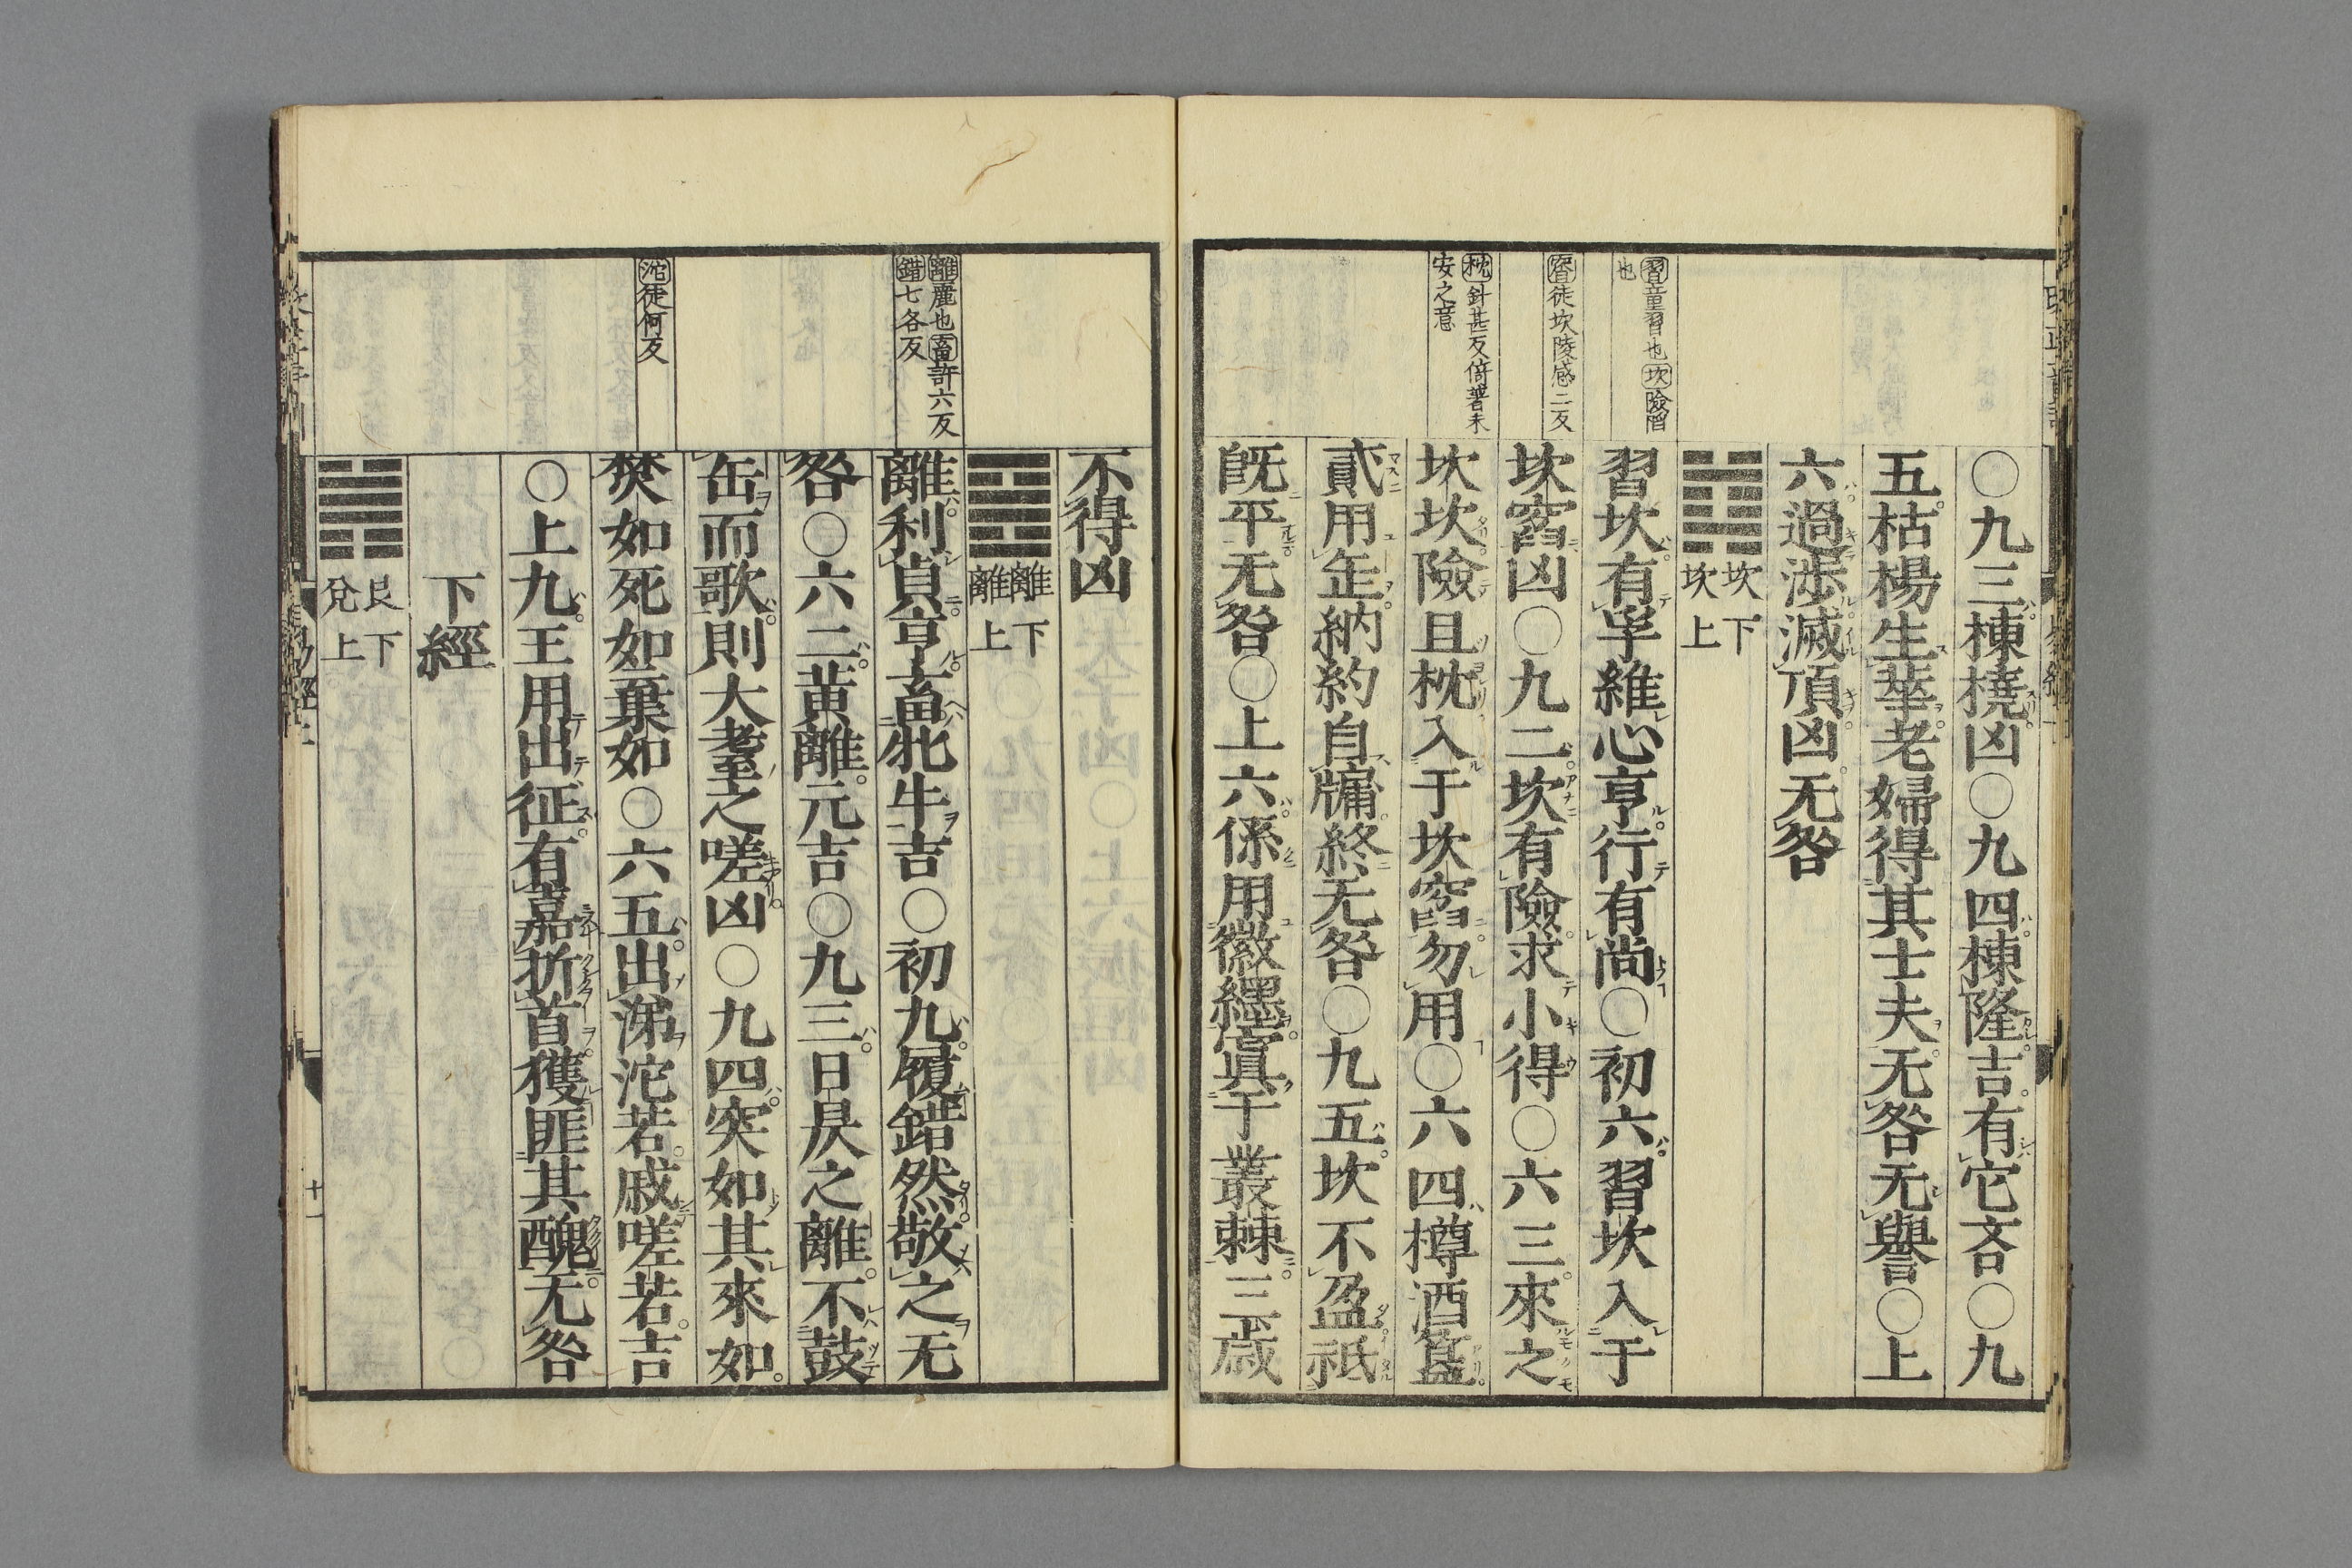 ○九三棟橈凶○九四棟隆吉有它吝○九
五枯楊生華老婦得其士夫无咎无譽○上
六過渉滅頂凶无咎
坎下
坎上
習重習也坎險陷
也
習坎有孚維心亨行有尚○初六習坎入于
窞徒坎陵感二反
坎窞凶○九二坎有險求小得○六三來之
枕針甚反倚著未
安之意
坎坎險且枕入于坎窞勿用○六四樽酒簋
貳用缶納約自牖終无咎○九五坎不盈祇
旣平无咎○上六係用徽纆寘于叢棘三歲
不得凶
離下
離上
離麗也畜許六反
錯七各反
離利貞亨畜牝牛吉○初九履錯然敬之无
咎○六二黃離元吉○九三日昃之離不鼓
缶而歌則大耋之嗟凶○九四突如其來如
沱徒何反
焚如死如棄如○六五出涕沱若戚嗟若吉
○上九王用出征有嘉折首獲匪其醜无咎
下經
艮下
兌上
十一